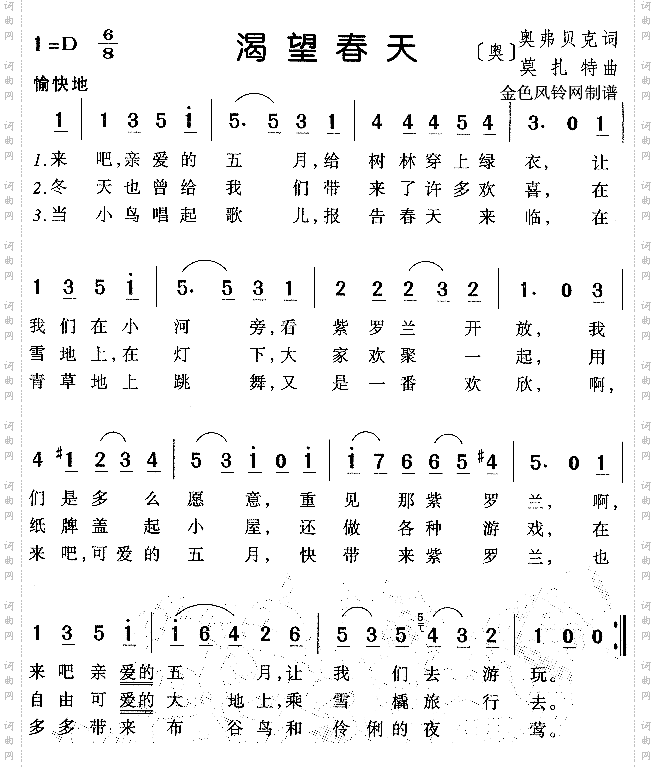 1=D 6/8 渴望春天 〔奥〕 奥弗贝克词
莫扎特曲
愉快地 金色风铃网制谱
1 | 1 3 5 i | 5. 5 3 1 | 4 4 4 5 4 | 3. 0 1
1.来 吧,亲爱的 五 月,给 树林穿上绿 衣,让
2.冬 天也曾给 我 们带 来了许多欢 喜,在
3.当 小鸟唱起 歌 儿,报 告春天 来 临,在
1 3 5 i | 5. 5 3 1 | 2 2 2 3 2 | 1. 0 3
我们在小 河 旁,看 紫罗兰 开 放,我
雪地上,在 灯 下,大 家欢聚 一 起,用
青草地上 跳 舞,又 是一番 欢 欣,啊,
4 #1 2 3 4 | 5 3 i 0 i | i 7 6 6 5 #4 | 5. 0 1
们是多 么 愿 意,重 见 那紫 罗 兰,啊,
纸牌盖 起 小 屋,还 做 各种 游 戏,在
来吧,可爱的 五 月,快 带 来紫 罗 兰,也
1 3 5 i | i 6 4 2 6 | 5 3 5 5 4 3 2 | 1 0 0 :‖
来吧亲 爱的 五 月,让 我 们去 游 玩。
自由可 爱的 大 地上,乘 雪 橇旅 行 去。
多多带 来布 谷鸟和 伶 俐的夜 莺。
词曲网